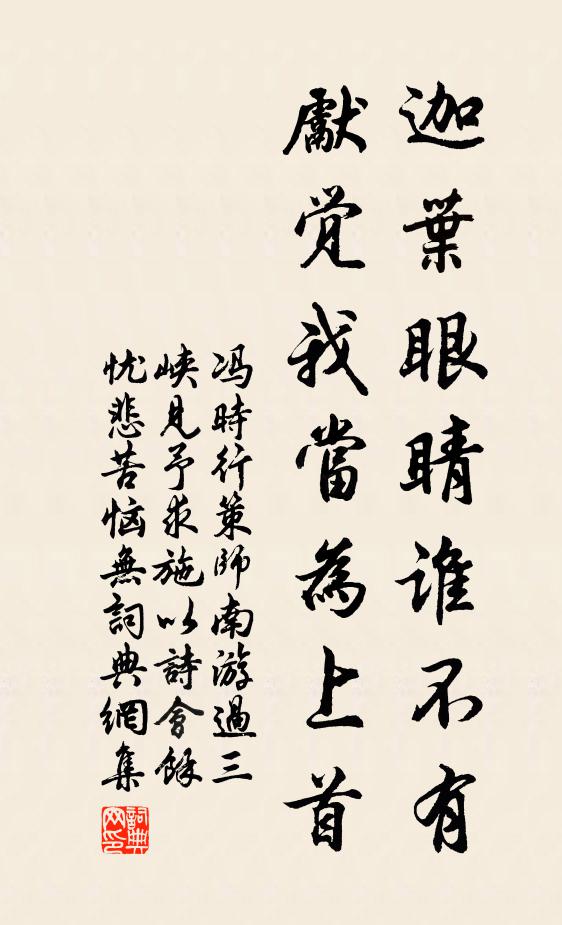 迦葉眼睛谁不有
獻覚我當為上首
冯時行策師南游過三
峡見予求施以詩會餘
忧悲苦恼無詞典網集
詞典
网印